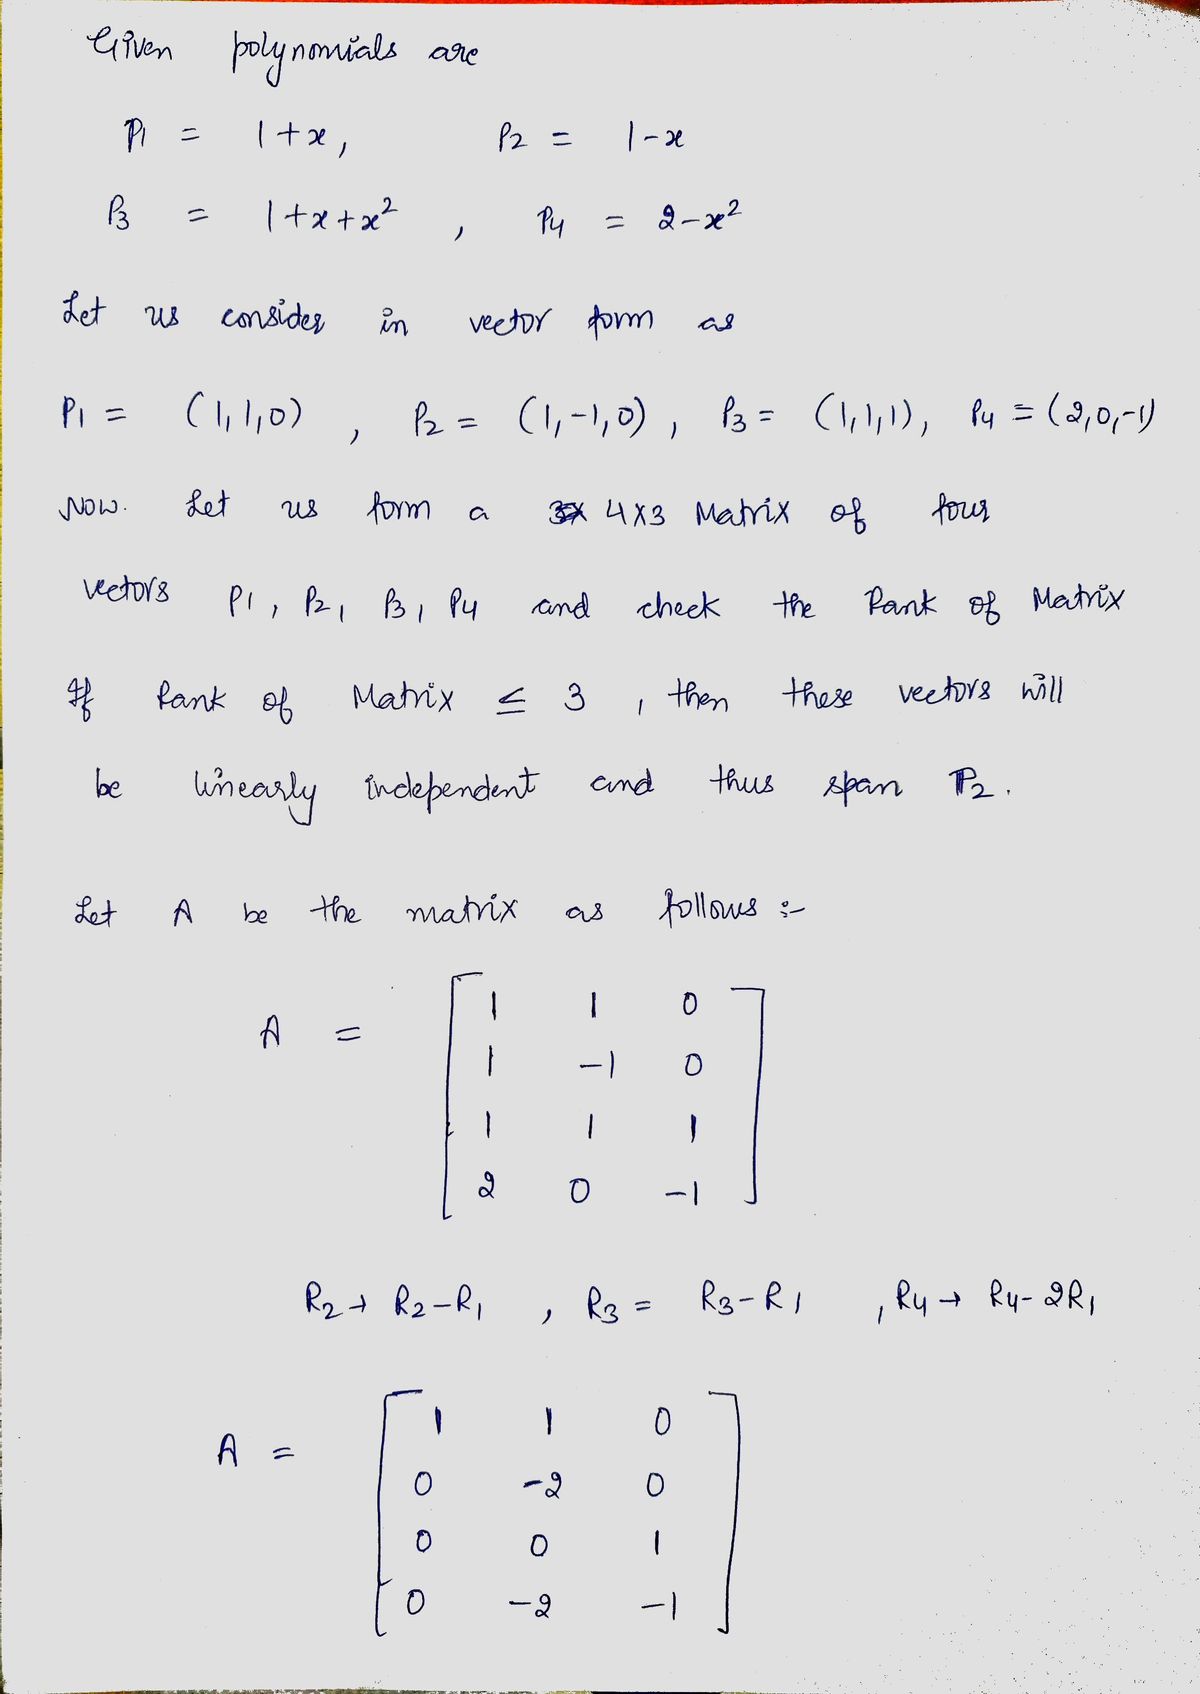 Given polynomials are
P1 = 1+x, P2 = 1-x
P3 = 1+x+x², P4 = 2-x²
Let us consider in vector form as
P1 = (1,1,0), P2 = (1,-1,0), P3 = (1,1,1), P4 = (2,0,-1)
NOW. Let us form a 4x3 Matrix of four
vectors P1, P2, P3, P4 and check the Rank of Matrix
If Rank of Matrix ≤ 3, then these vectors will
be linearly independent and thus span P2.
Let A be the matrix as follows :-
A = [ 1 1 0
1 -1 0
1 1 1
2 0 -1 ]
R2 → R2-R1, R3 = R3-R1, R4 → R4-2R1
A = [ 1 1 0
0 -2 0
0 0 1
0 -2 -1 ]